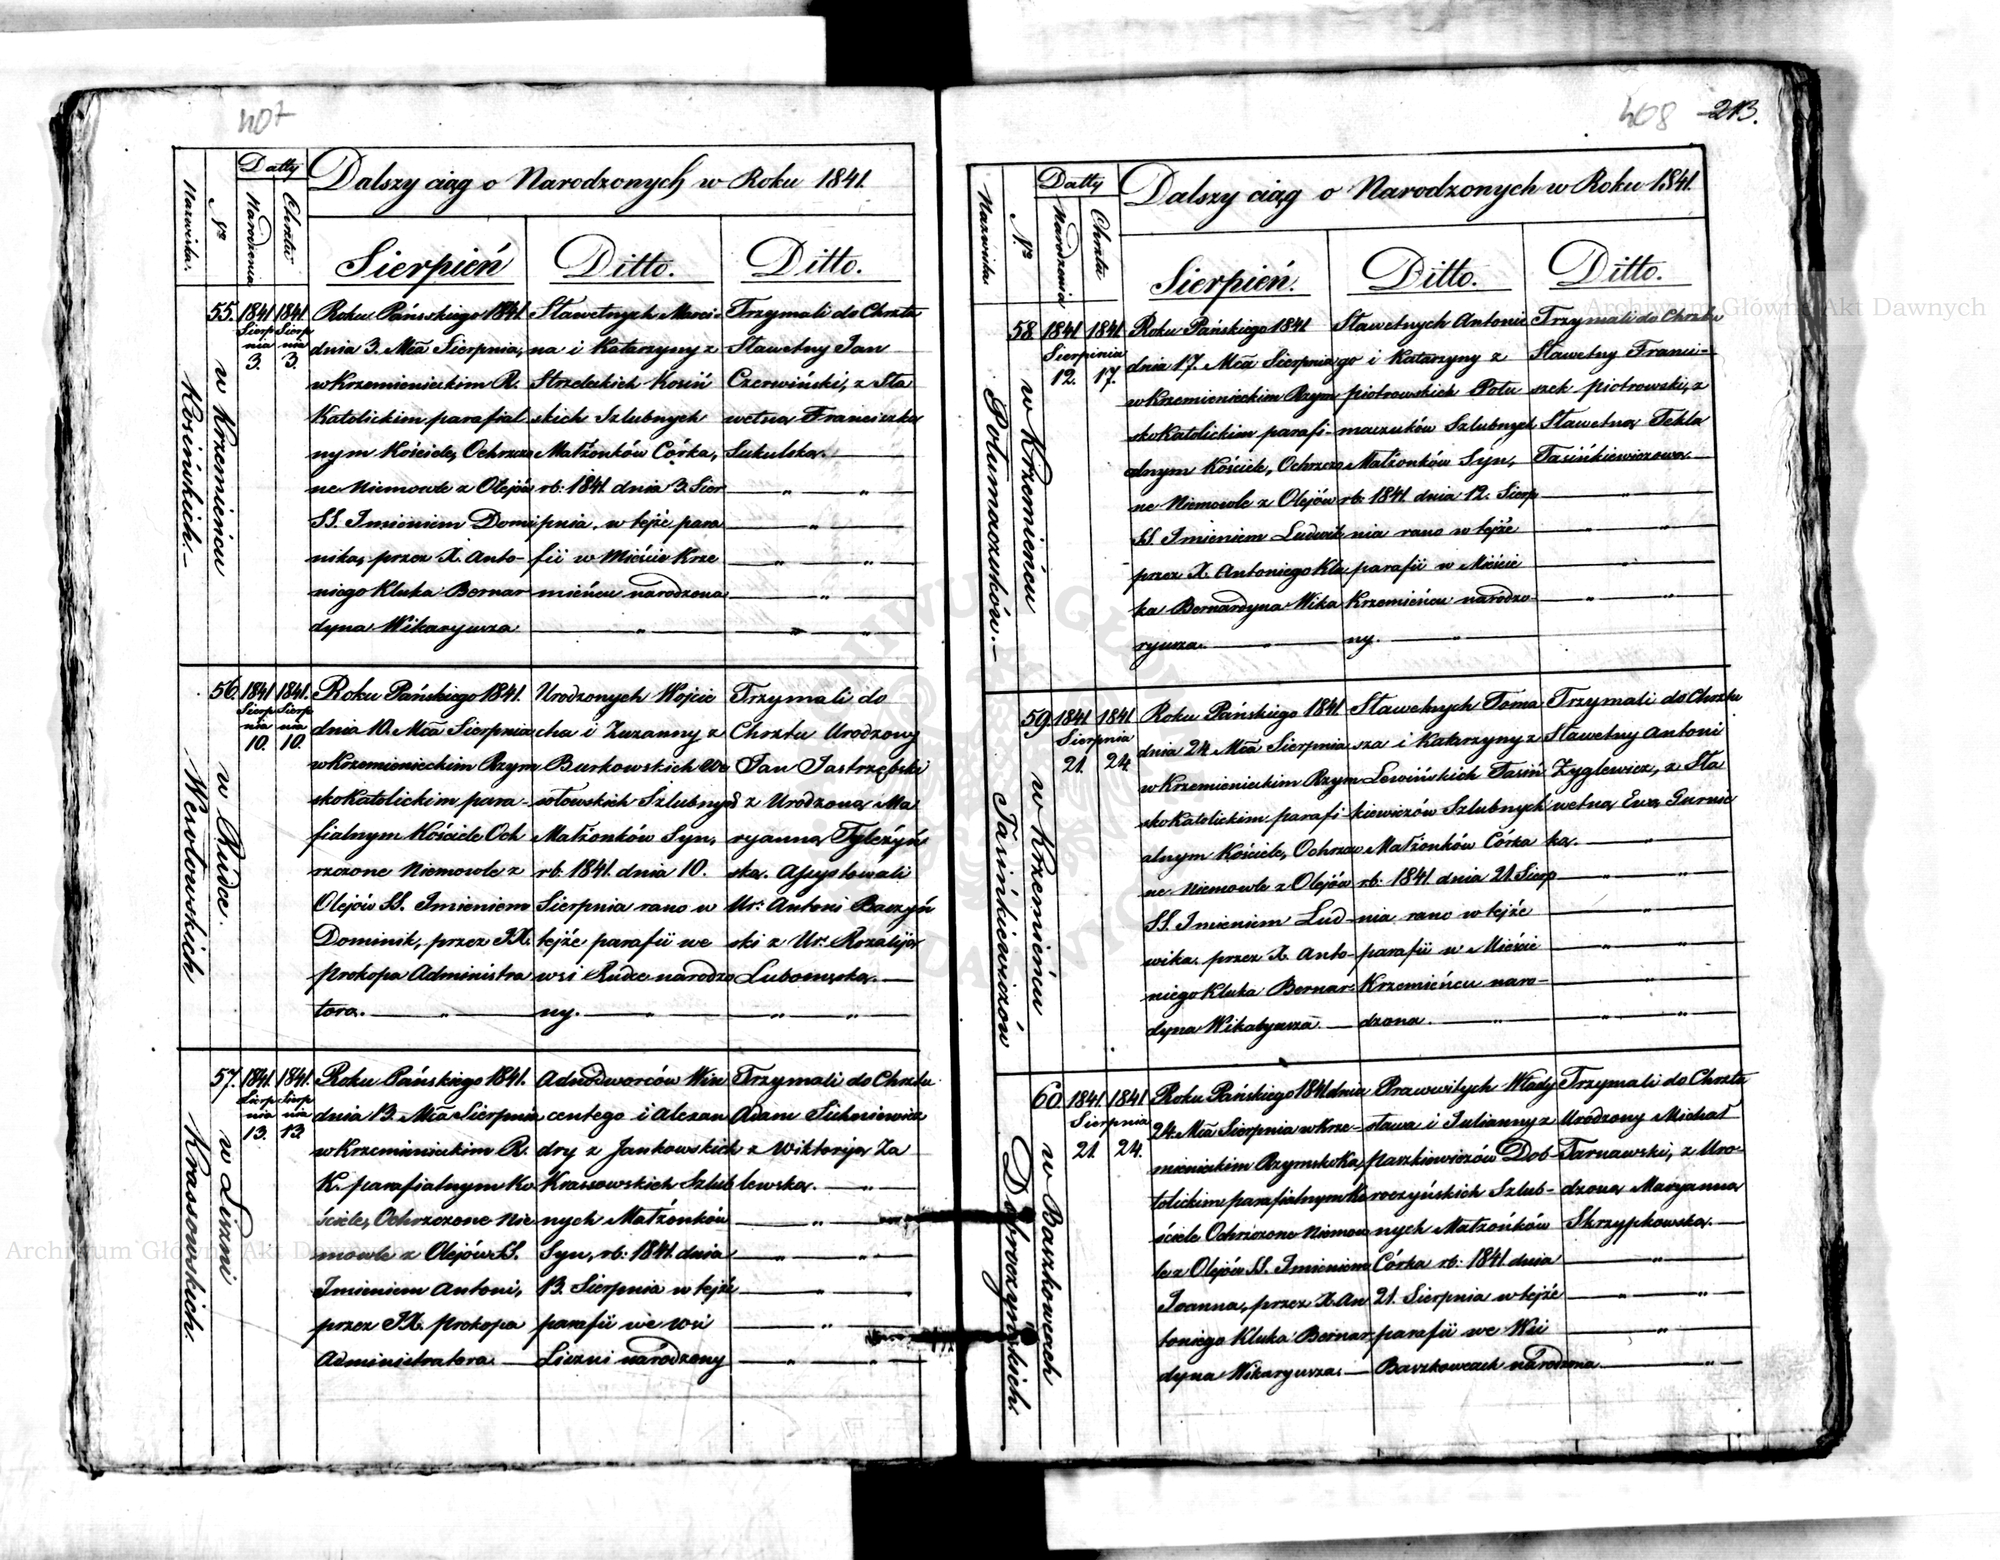 407
Datty
Dalszy ciąg o Narodzonych w Roku 1841.
Nazwiska.
Nro
Narodzenia
Chrztu
Sierpień
Ditto.
Ditto.
w Krzemieńcu
Kosińskich.—
55.
1841
Sierp
nia
3.
1841
Sierp
nia
3.
Roku Pańskiego 1841
dnia 3. Mca Sierpnia,
w Krzemienieckim R.
Katolickim parafial-
nym Kościele, Ochrzczo
ne Niemowle z Olejów
SS. Imieniem Domi
nika, przez X. Anto-
niego Kluka Bernar
dyna Wikaryusza
Sławetnych Marci-
na i Katarzyny z
Strzeleckich Kosiń
skich Szlubnych
Małżonków Córka,
rb: 1841 dnia 3. Sier
pnia, w tejże para
fii w Mieście Krze
mieńcu narodzona
Trzymali do Chrztu
Sławetny Jan
Czerwiński, z Sła
wetną Franciszką
Sukulską.
w Rudce.
Wesołowskich
56.
1841
Sierp
nia
10.
1841.
Sierp
nia
10.
Roku Pańskiego 1841.
dnia 10. Mca Sierpnia
w Krzemienieckim Rzym
sko Katolickim para-
fialnym Kościele Och
rzczone Niemowle z
Olejów SS. Imieniem
Dominik, przez JX.
Prokopa Administra
tora.
Urodzonych Wojcie
cha i Zuzanny z
Burkowskich We
sołowskich Szlubnych
Małżonków Syn,
rb: 1841. dnia 10.
Sierpnia rano w
tejże parafii we
wsi Rudce narodzo
ny.
Trzymali do
Chrztu Urodzony
Jan Jastrzębski
z Urodzoną Ma
ryanną Tylczyń
ską. Assystowali
Ur: Antoni Baczyń
ski z Ur: Rozalją
Lubomską.
w Liszni
Krassowskich.
57.
1841.
Sierp
nia
13.
1841.
Sierp
nia
13.
Roku Pańskiego 1841.
dnia 13. Mca Sierpnia
w Krzemienieckim R.
K. parafialnym Ko
ściele, Ochrzczone Nie
mowle z Olejów SS.
Imieniem Antoni,
przez JX. Prokopa
Administratora.
Adnodworców Win
centego i Alexan
dry z Jankowskich
Krassowskich Szlub
nych Małżonków
Syn, rb: 1841. dnia
13. Sierpnia w tejże
parafii we wsi
Liszni narodzony
Trzymali do Chrztu
Adam
z Wiktoryą Za
lewską.
408
213.
Datty
Dalszy ciąg o Narodzonych w Roku 1841.
Nazwiska
Nro
Narodzenia
Chrzta
Sierpień.
Ditto.
Ditto.
w Krzemieńcu
Potumaczuków.—
58
1841
1841
Sierpinia
12.
17.
Roku Pańskiego 1841
dnia 17. Mca Sierpnia
w Krzemienieckim Rzym
sko Katolickim parafi-
alnym Kościele, Ochrzczo
ne Niemowle z Olejów
SS Imieniem Ludwik
przez X. Antoniego Klu
ka Bernardyna Wika
ryusza.
Sławetnych Antonie
go i Katarzyny z
Piotrowskich Potu
maczuków Szlubnych
Małżonków Syn,
rb: 1841. dnia 12. Sierp
nia rano w tejże
parafii w Mieście
Krzemieńcu narodzo-
ny.
Trzymali do Chrztu
Sławetny Franci-
szek Piotrowski, z
Sławetną Teklą
Tasińkiewiczową.
w Krzemieńcu
Tasińkiewiczów
59
1841
1841
Sierpnia
21.
24.
Roku Pańskiego 1841
dnia 24. Mca Sierpnia
w Krzemienieckim Rzym
sko Katolickim parafi-
alnym Kościele, Ochrzczo
ne Niemowle z Olejów
SS. Imieniem Lud-
wika. przez X. Anto-
niego Kluka Bernar-
dyna Wikaryusza
Sławetnych Toma
sza i Katarzyny z
Lewińskich Tasiń
kiewiczów Szlubnych
Małżonków Córka
rb: 1841 dnia 21. Sierp
nia rano w tejże
parafii w Mieście
Krzemieńcu naro-
dzona.
Trzymali do Chrztu
Sławetny Antoni
Zyglewicz, z Sła
wetną Ewą Gurnic
ką.
w Baszkowcach
Dobroczyńskich.
60
1841.
1841
Sierpnia
21
24.
Roku Pańskiego 1841 dnia
24. Mca Sierpnia w Krze-
mienieckim Rzymsko Ka
tolickim parafialnym Ko
ściele Ochrzczone Niemow
le z Olejów SS. Imieniem
Joanna, przez X. An
toniego Kluka Bernar-
dyna Wikaryusza.
Prawowitych Włady
sława i Julianny z
Paszkiewiczów Dob-
roczyńskich Szlub-
nych Małżonków
Córka rb: 1841. dnia
21. Sierpnia w tejże
parafii we Wsi
Baszkowcach narodzona
Trzymali do Chrzta
Urodzony Michał
Tarnawski, z Uro-
dzoną Maryanną
Skrzypkowską.
Archiwum Główne Akt Dawnych
Archiwum Główne Akt Dawnych